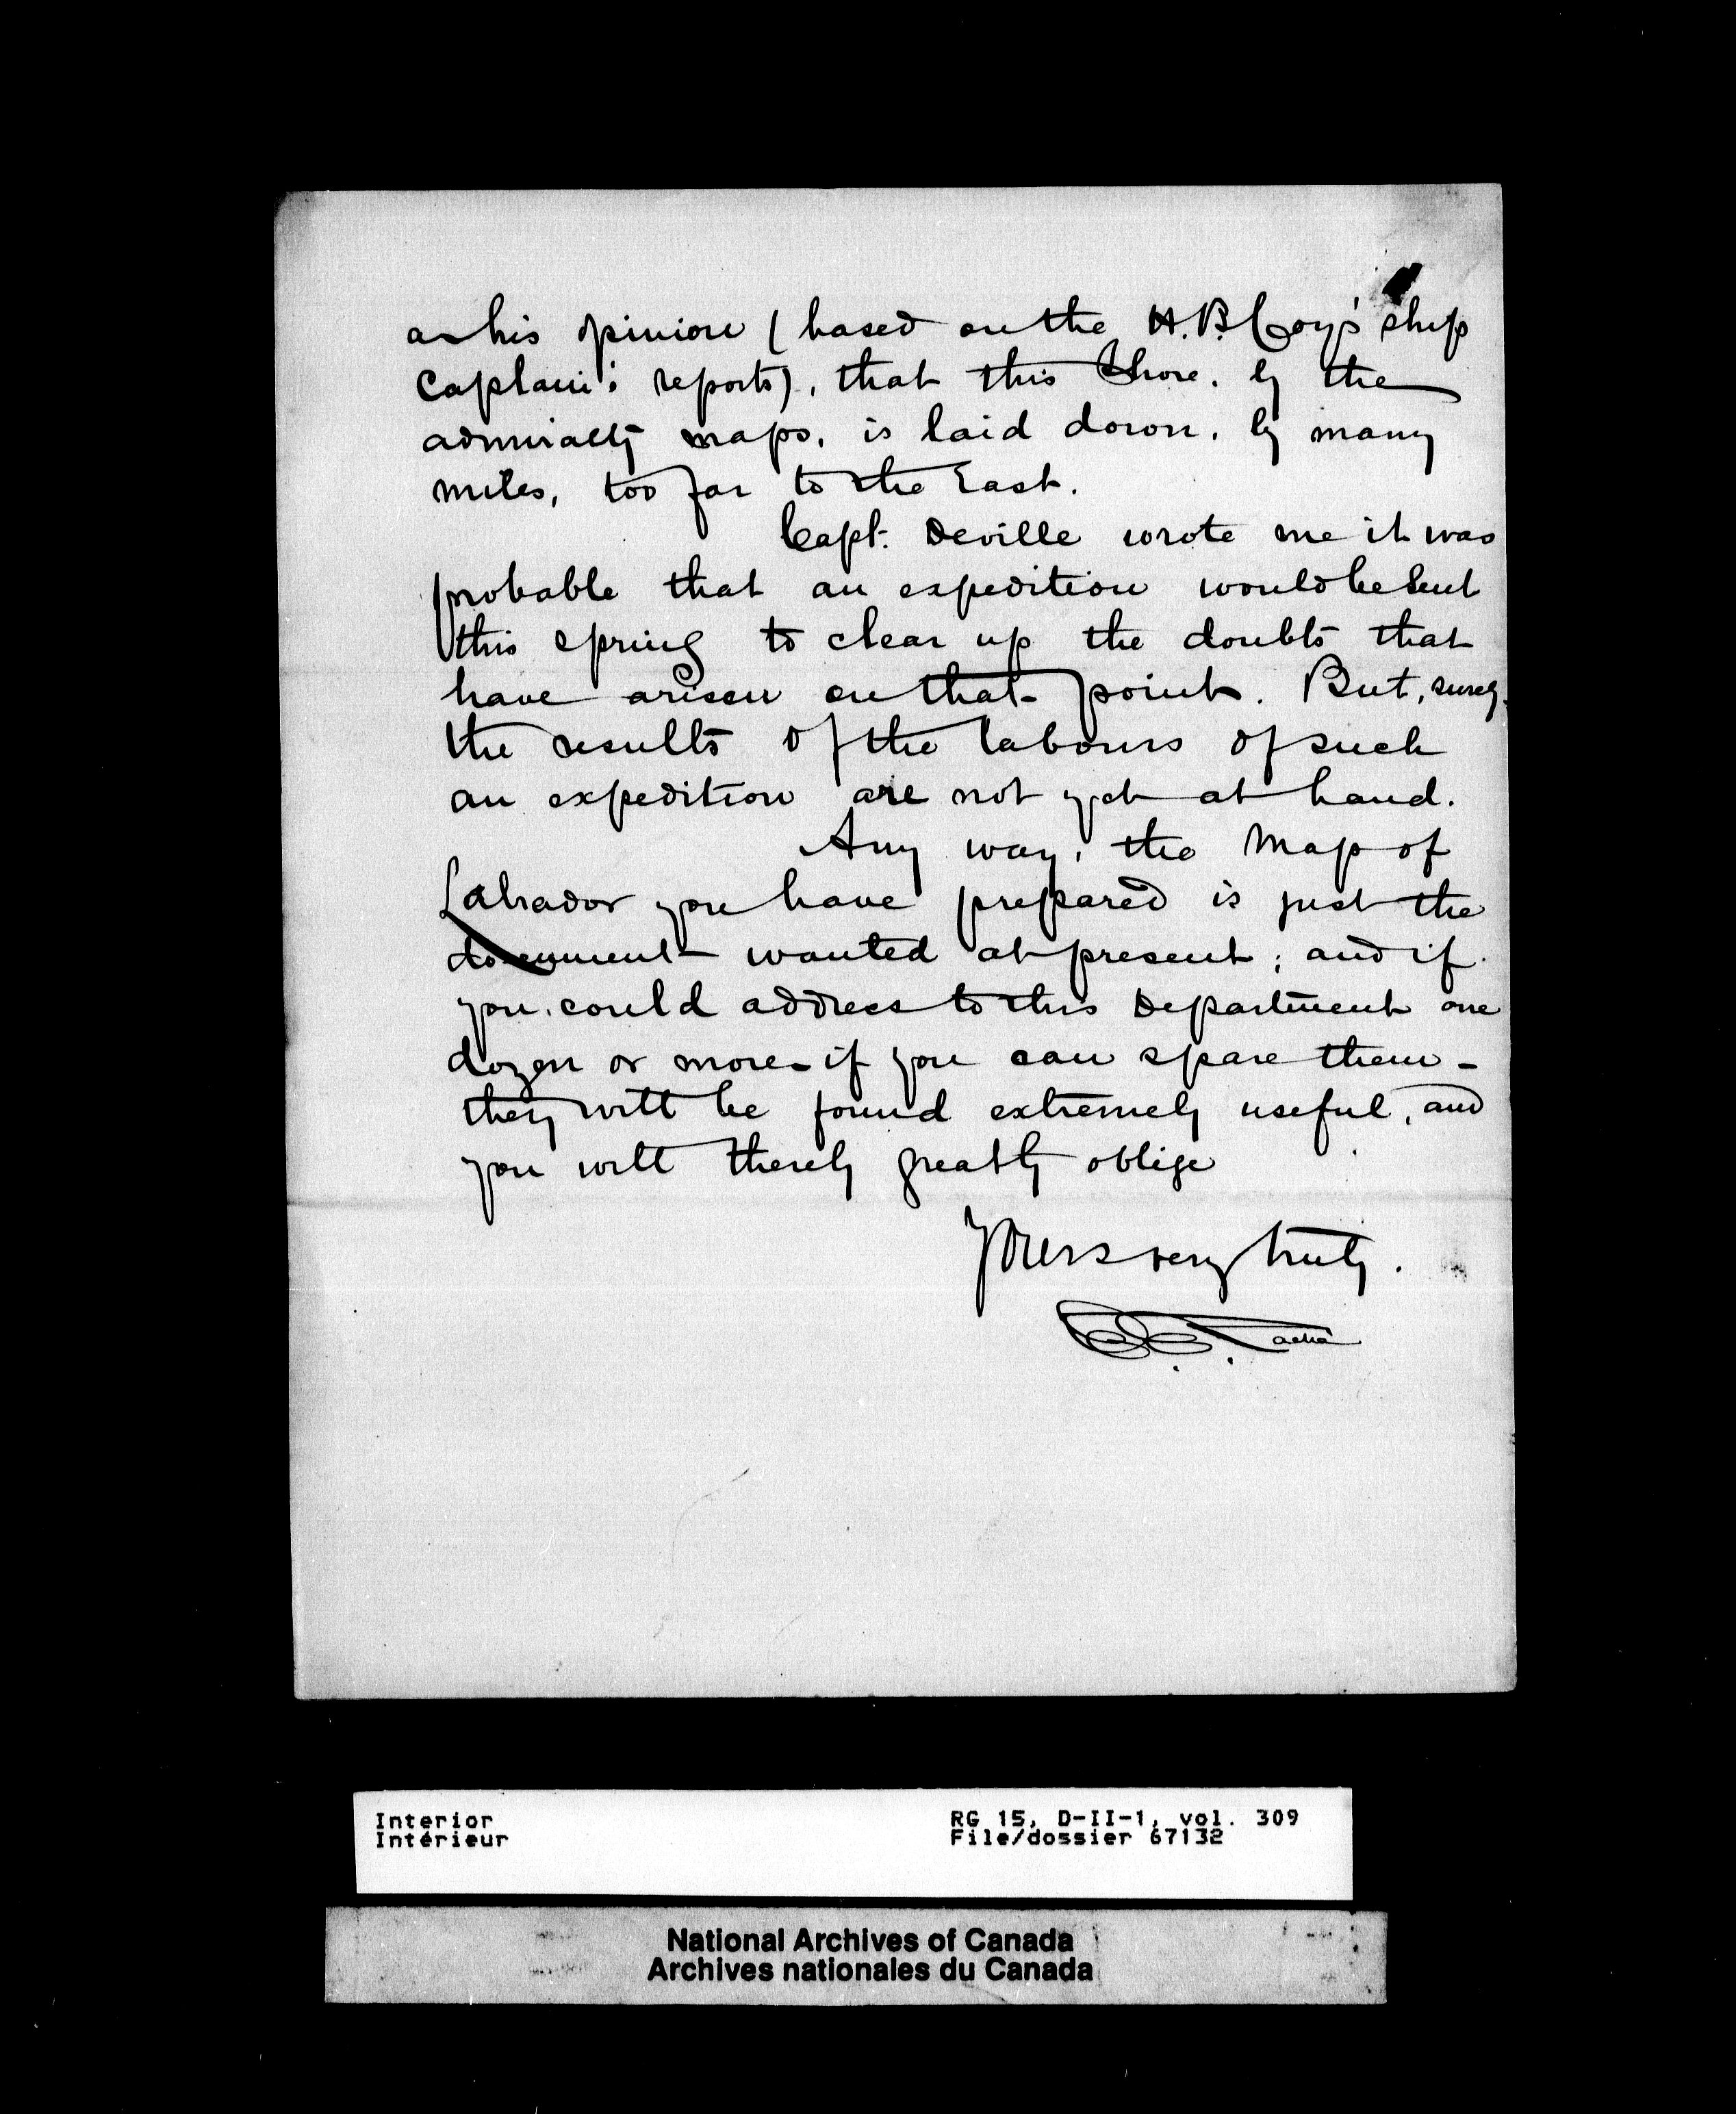 as his opinion (based on the H.B. Coy's ship
Captains' reports), that this Shore, by the
admiralty maps, is laid down, by many
miles, too far to the East.
Capt. Deville wrote me it was
probable that an expedition would be sent
this spring to clear up the doubts that
have arisen on that point. But, surely,
the results of the labours of such
an expedition are not yet at hand.
Any way, the Map of
Labrador you have prepared is just the
document wanted at present; and if
you could address to this Department one
dozen or more - if you can spare them -
they will be found extremely useful, and
you will thereby greatly oblige
Yours very truly.
E.E. Taché
Interior
Intérieur
RG 15, D-II-1, vol. 309
File/dossier 67132
National Archives of Canada
Archives nationales du Canada